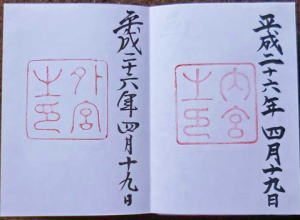 平成二十六年四月十九日
内宮之印
平成二十六年四月十九日
外宮之印